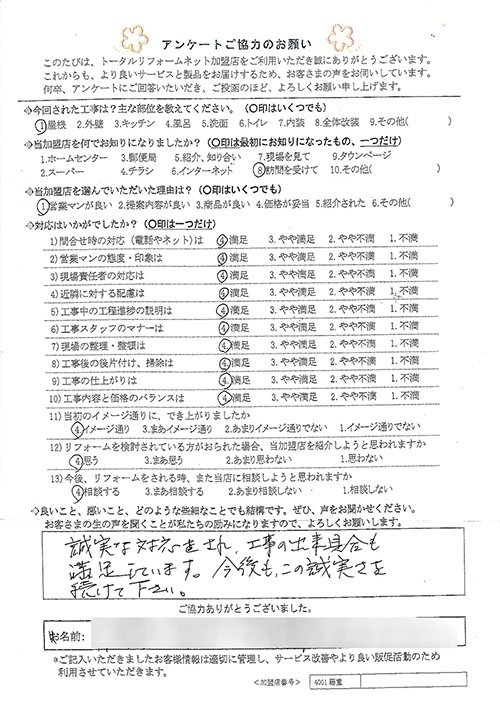 アンケートご協力のお願い
このたびは、トータルリフォームネット加盟店をご利用いただき誠にありがとうございます。
これからも、より良いサービスと製品をお届けするため、お客さまの声をお伺いしています。
何卒、アンケートにご回答いただき、ご投函のほど、よろしくお願い申し上げます。
▷今回された工事は？主な部位を教えてください。（〇印はいくつでも）
①屋根 2.外壁 3.キッチン 4.風呂 5.洗面 6.トイレ 7.内装 8.全体改装 9.その他( )
▷当加盟店を何でお知りになりましたか？（〇印は最初にお知りになったもの、一つだけ）
1.ホームセンター 3.郵便局 5.紹介、知り合い 7.現場を見て 9.タウンページ
2.スーパー 4.チラシ 6.インターネット ⑧訪問を受けて 10.その他( )
▷当加盟店を選んでいただいた理由は？（〇印はいくつでも）
①営業マンが良い 2.提案内容が良い 3.商品が良い 4.価格が妥当 5.紹介された 6.その他( )
▷対応はいかがでしたか？（〇印は一つだけ）
1)問合せ時の対応（電話やネット)は ④満足 3.やや満足 2.やや不満 1.不満
2)営業マンの態度・印象は ④満足 3.やや満足 2.やや不満 1.不満
3)現場責任者の対応は ④満足 3.やや満足 2.やや不満 1.不満
4)近隣に対する配慮は ④満足 3.やや満足 2.やや不満 1.不満
5)工事中の工程進捗の説明は ④満足 3.やや満足 2.やや不満 1.不満
6)工事スタッフのマナーは ④満足 3.やや満足 2.やや不満 1.不満
7)現場の整理・整頓は ④満足 3.やや満足 2.やや不満 1.不満
8)工事後の後片付け、掃除は ④満足 3.やや満足 2.やや不満 1.不満
9)工事の仕上がりは ④満足 3.やや満足 2.やや不満 1.不満
10)工事内容と価格のバランスは ④満足 3.やや満足 2.やや不満 1.不満
11)当初のイメージ通りに、でき上がりましたか
④イメージ通り 3.まあイメージ通り 2.あまりイメージ通りでない 1.イメージ通りでない
12)リフォームを検討されている方がおられた場合、当加盟店を紹介しようと思われますか
④思う 3.まあ思う 2.あまり思わない 1.思わない
13)今後、リフォームをされる時、また当店に相談しようと思われますか
④相談する 3.まあ相談する 2.あまり相談しない 1.相談しない
▷良いこと、悪いこと、どのような些細なことでも結構です。ぜひ、声をお聞かせください。
お客さまの生の声を聞くことが私たちの励みになりますので、よろしくお願いします。
誠実な対応をされ、工事の出来具合も
満足しています。今後も、この誠実さを
続けて下さい。
ご協力ありがとうございました。
お名前:
*ご記入いただきましたお客様情報は適切に管理し、サービス改善やより良い販促活動のため
利用させていただきます。
<加盟店番号> 4001 藤重